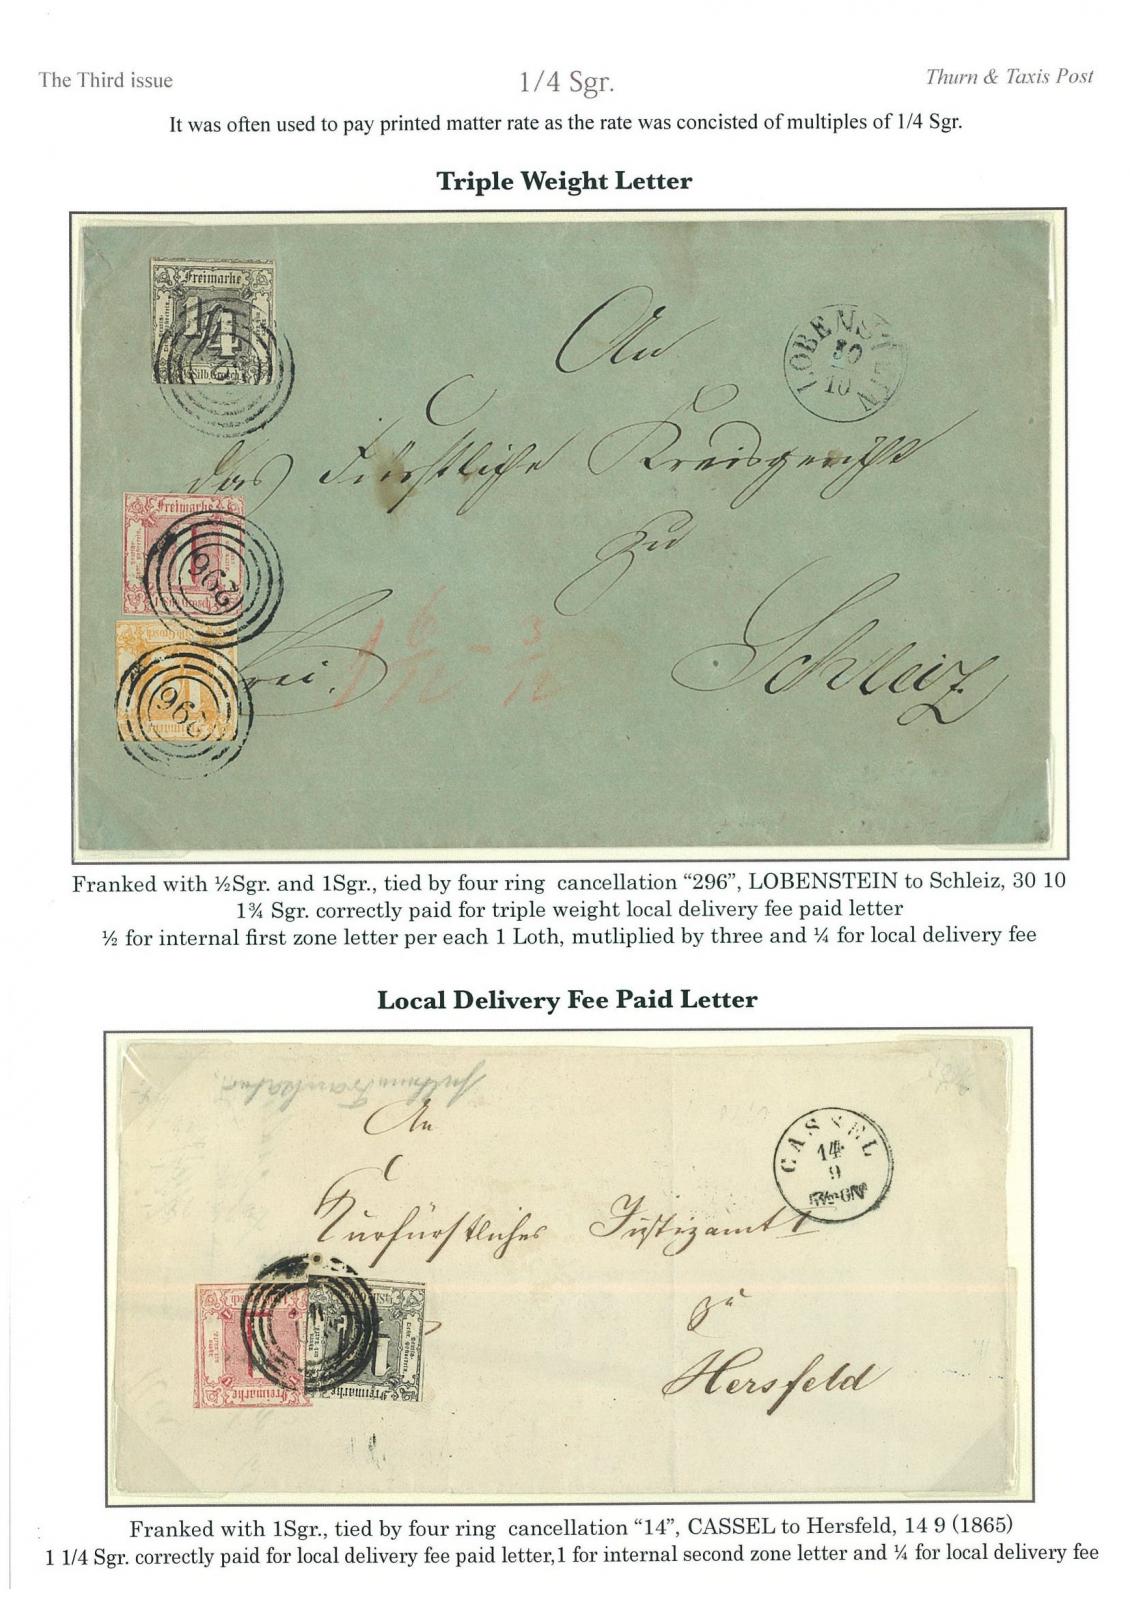 The Third issue
1/4 Sgr.
Thurn & Taxis Post
It was often used to pay printed matter rate as the rate was concisted of multiples of 1/4 Sgr.
Triple Weight Letter
Freimarke
1/4
Silb. Grosch
LOBENSTEIN
30
10
An
das Fürstliche Kreisgericht
Freimarke
296
zu
frei.
1 6/12 - 3/12
Schleiz
296
Franked with ½Sgr. and 1Sgr., tied by four ring cancellation “296”, LOBENSTEIN to Schleiz, 30 10
1¾ Sgr. correctly paid for triple weight local delivery fee paid letter
½ for internal first zone letter per each 1 Loth, mutliplied by three and ¼ for local delivery fee
Local Delivery Fee Paid Letter
An
CASSEL
14
9
Kurfürstliches Justizamt
zu
Hersfeld
Freimarke
Freimarke
Franked with 1Sgr., tied by four ring cancellation “14”, CASSEL to Hersfeld, 14 9 (1865)
1 1/4 Sgr. correctly paid for local delivery fee paid letter,1 for internal second zone letter and ¼ for local delivery fee